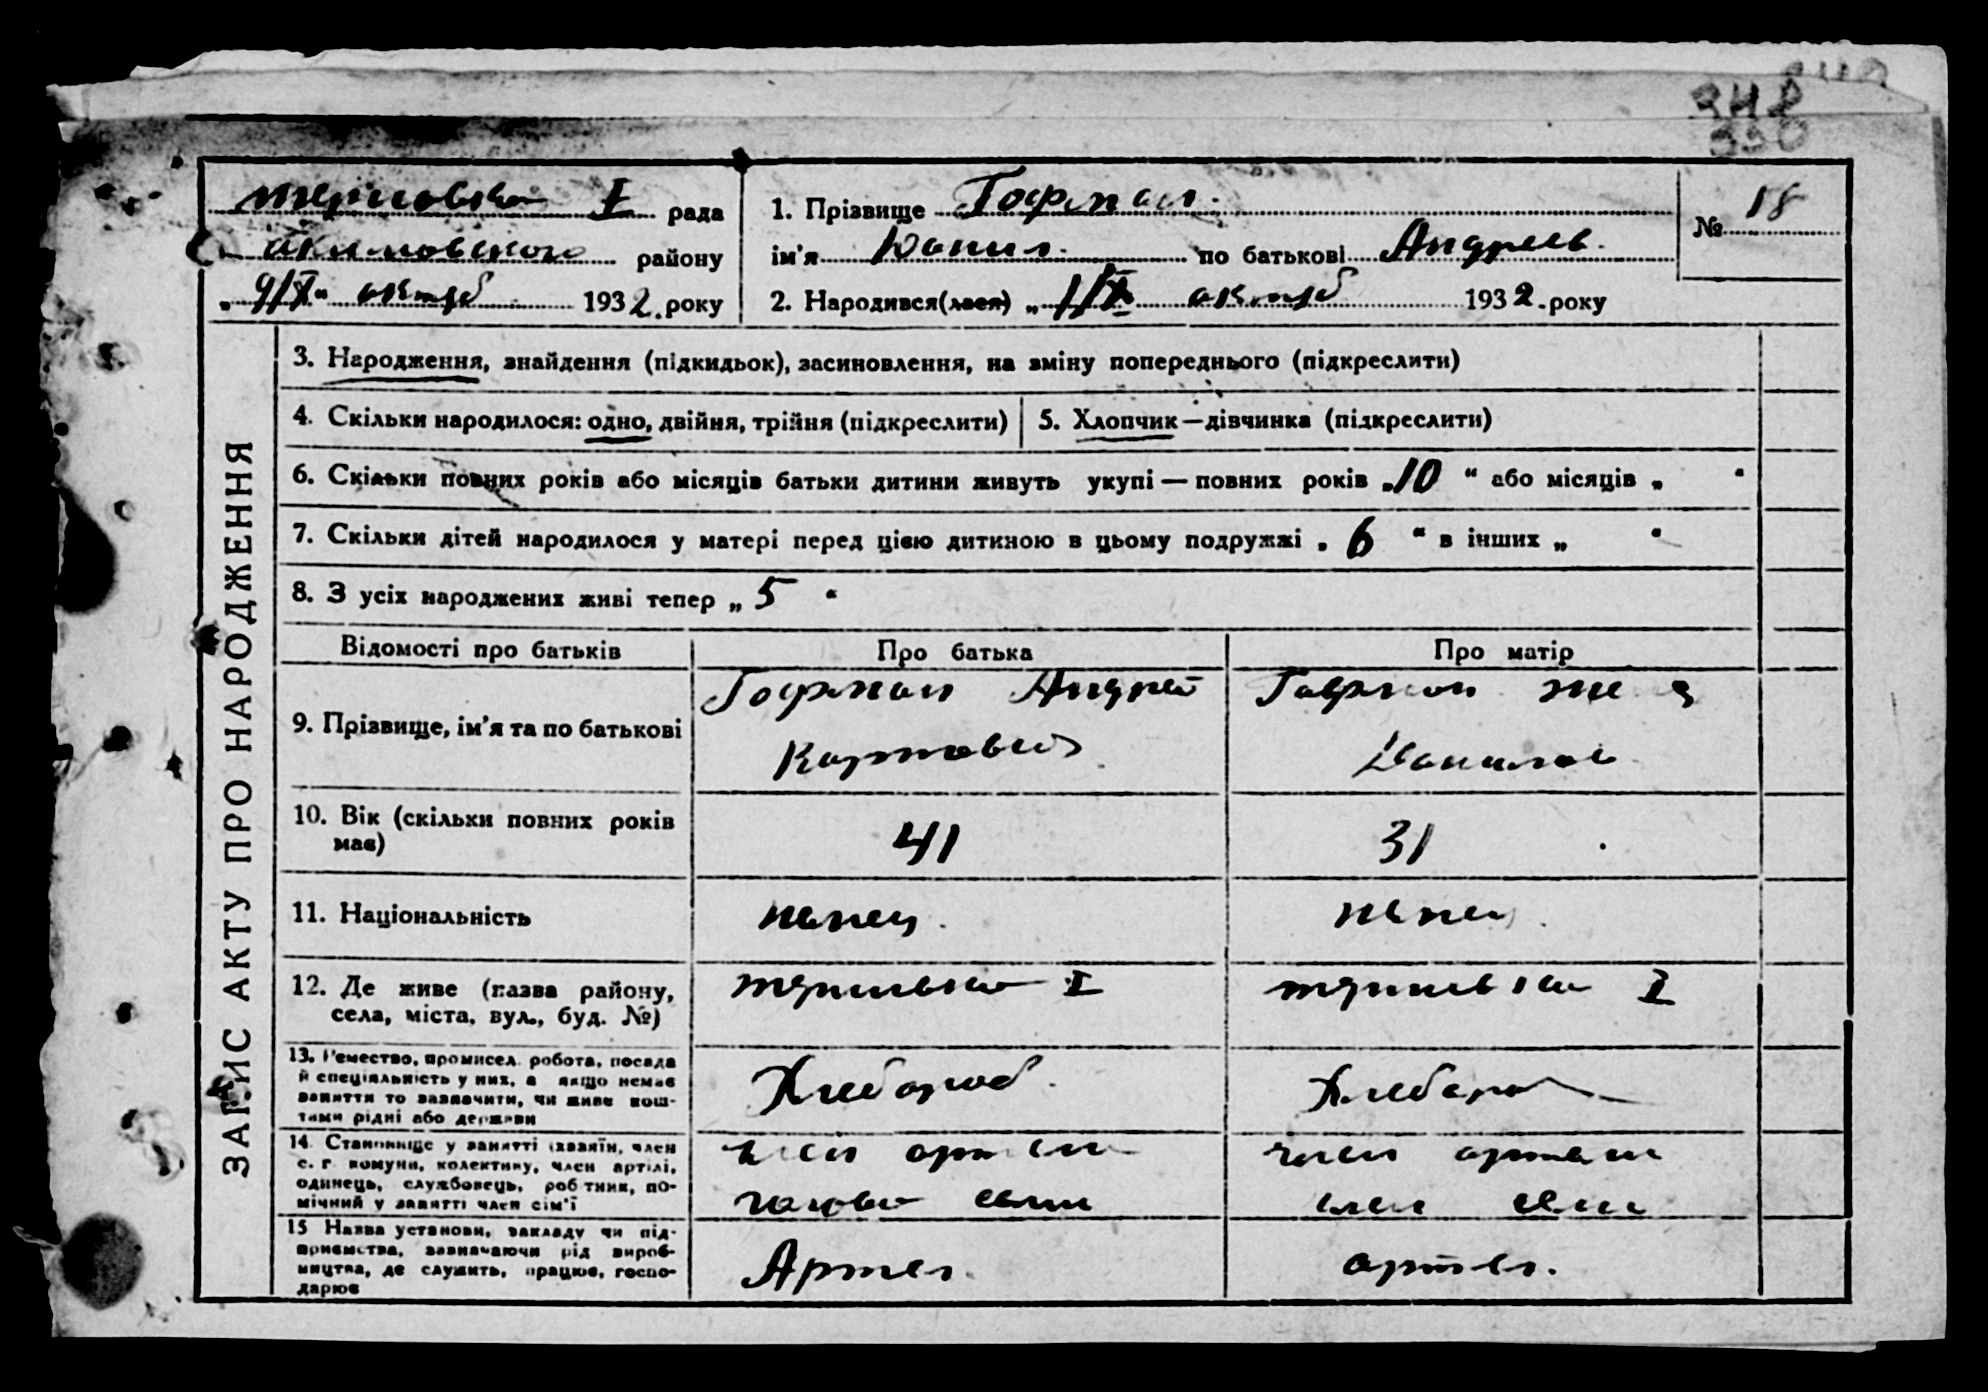 I рада
1. Прізвище Гофман.
№ 18
акимовского району
ім'я Данил. по батькові Андреев.
„9/X“ октяб 1932. року
2. Народився(лася) „1/X октяб 1932. року
ЗАПИС АКТУ ПРО НАРОДЖЕННЯ
3. Народження, знайдення (підкидьок), засиновлення, на зміну попереднього (підкреслити)
4. Скільки народилося: одно, двійня, трійня (підкреслити)
5. Хлопчик—дівчинка (підкреслити)
6. Скільки повних років або місяців батьки дитини живуть укупі — повних років „10 “ або місяців „ “
7. Скільки дітей народилося у матері перед цією дитиною в цьому подружжі „ 6 “ в інших „ “
8. З усіх народжених живі тепер „ 5 “
Відомості про батьків
Про батька
Про матір
9. Прізвище, ім'я та по батькові
Гофман Андрей
Гофман
Данилов
10. Вік (скільки повних років
має)
41
31
11. Національність
немец.
немец.
12. Де живе (назва району,
села, міста, вул., буд. №)
I
I
13. Ремество, промисел, робота, посада
й спеціяльність у них, а якщо немає
заняття то зазначити, чи живе кош-
тами рідні або держави
Хлебороб.
Хлебороб
14. Становище у занятті (хазяїн, член
с. г. комуни, колективу, член артілі,
одинець, службовець, робітник, по-
мічний у занятті член сім'ї
член артели
голова семи
член артели
член семи
15 Назва установи, закладу чи під-
приємства, зазначаючи рід вироб-
ництва, де служить, працює, госпо-
дарює
Артел.
артел.